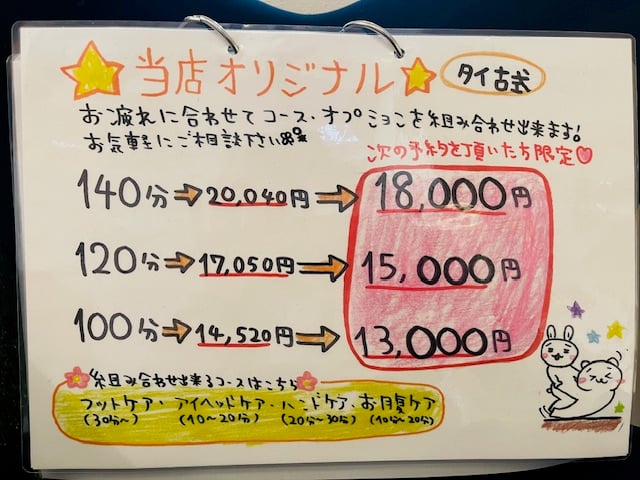 当店オリジナル タイ古式
お疲れに合わせてコース・オプションを組み合わせ出来ます!
お気軽にご相談下さい
次の予約を頂いたら限定
140分 20,040円 18,000円
120分 17,050円 15,000円
100分 14,520円 13,000円
組み合わせ出来るコースはこちら
フットケア・アイヘッドケア・ハンドケア・お腹ケア
(30分〜) (10〜20分) (20分〜30分) (10分〜20分)